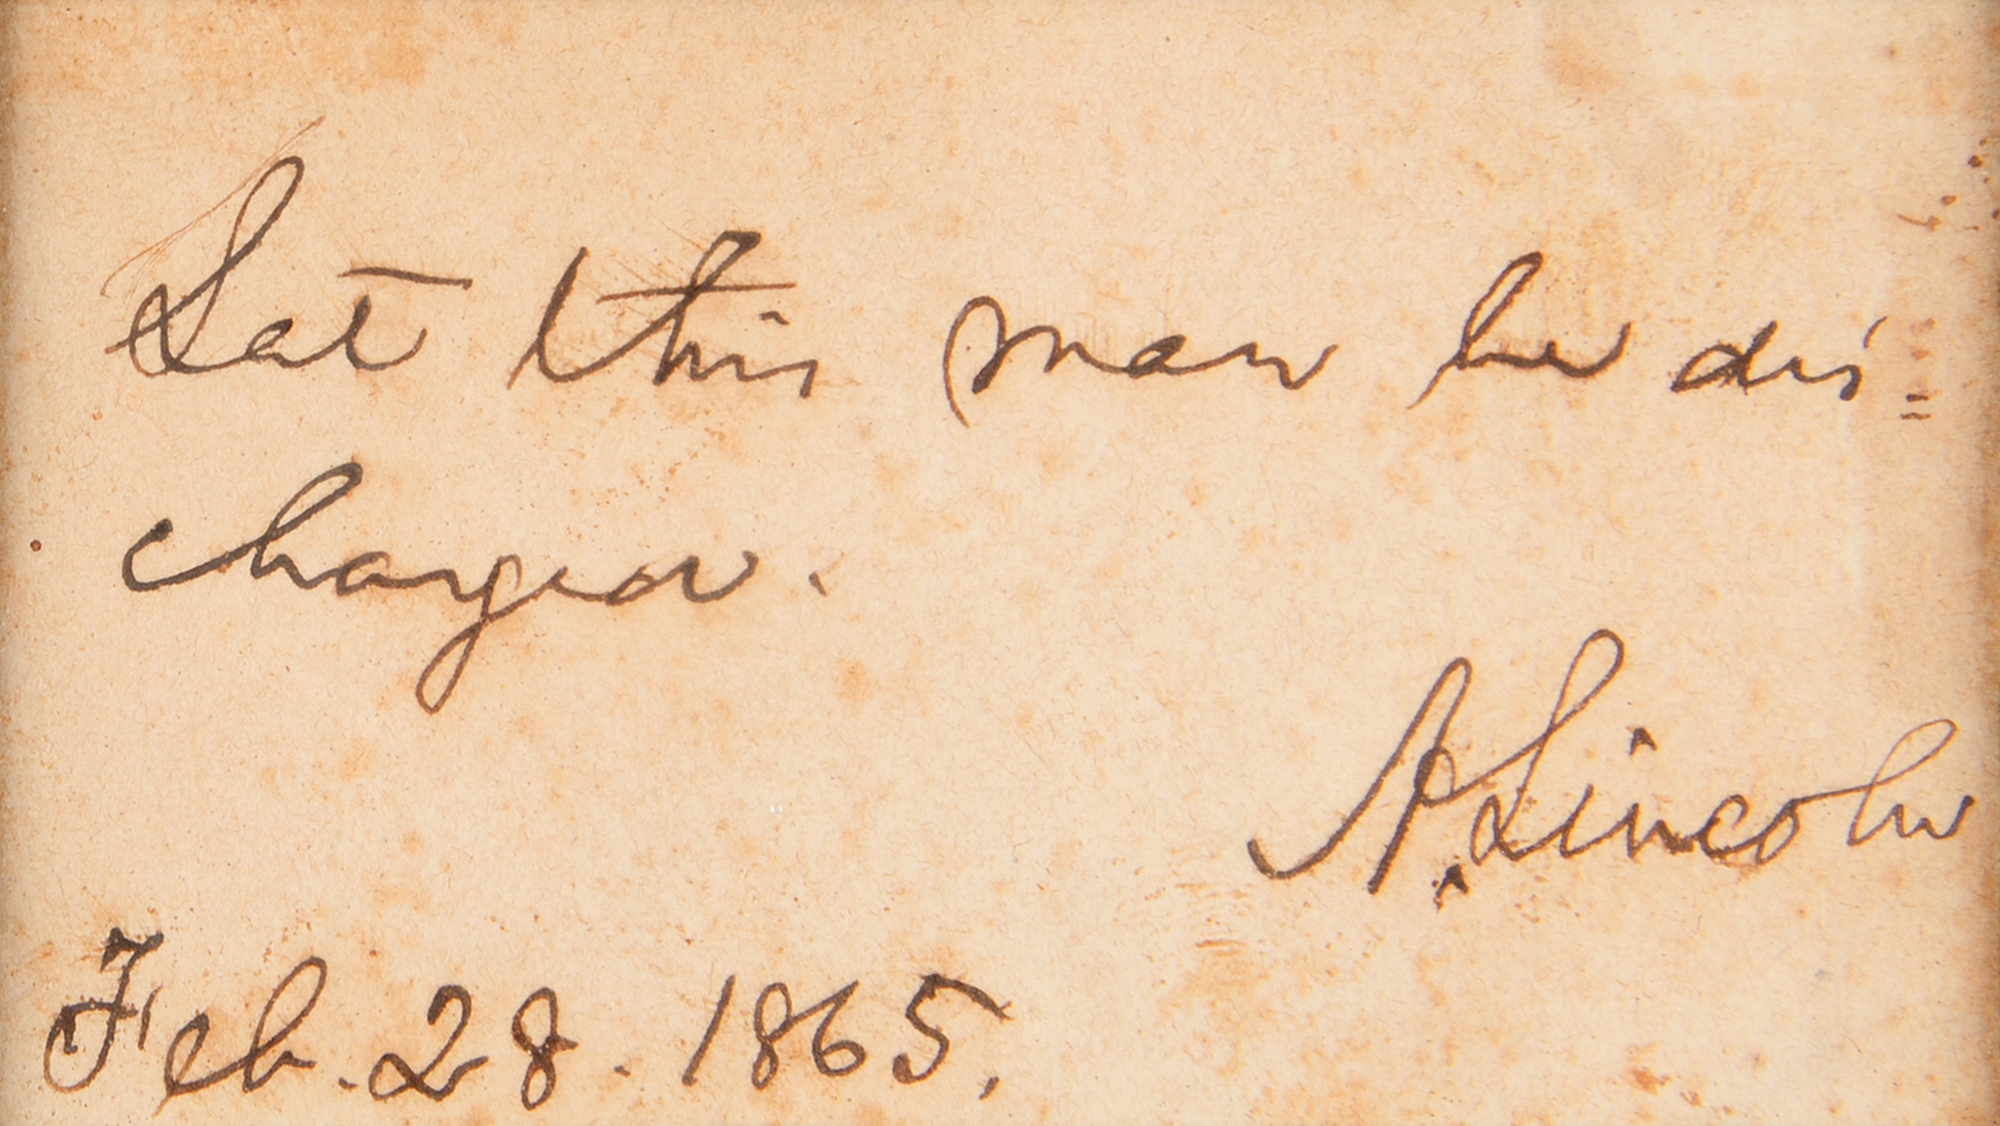 Let this man be dis=
charged.
A. Lincoln
Feb. 28. 1865.